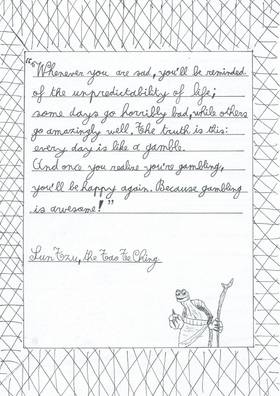 "Whenever you are sad, you'll be reminded
of the unpredictability of life;
some days go horribly bad, while others
go amazingly well. The truth is this:
every day is like a gamble.
And once you realize you're gambling,
you'll be happy again. Because gambling
is awesome!"
Sun Tzu, the Tao Te Ching